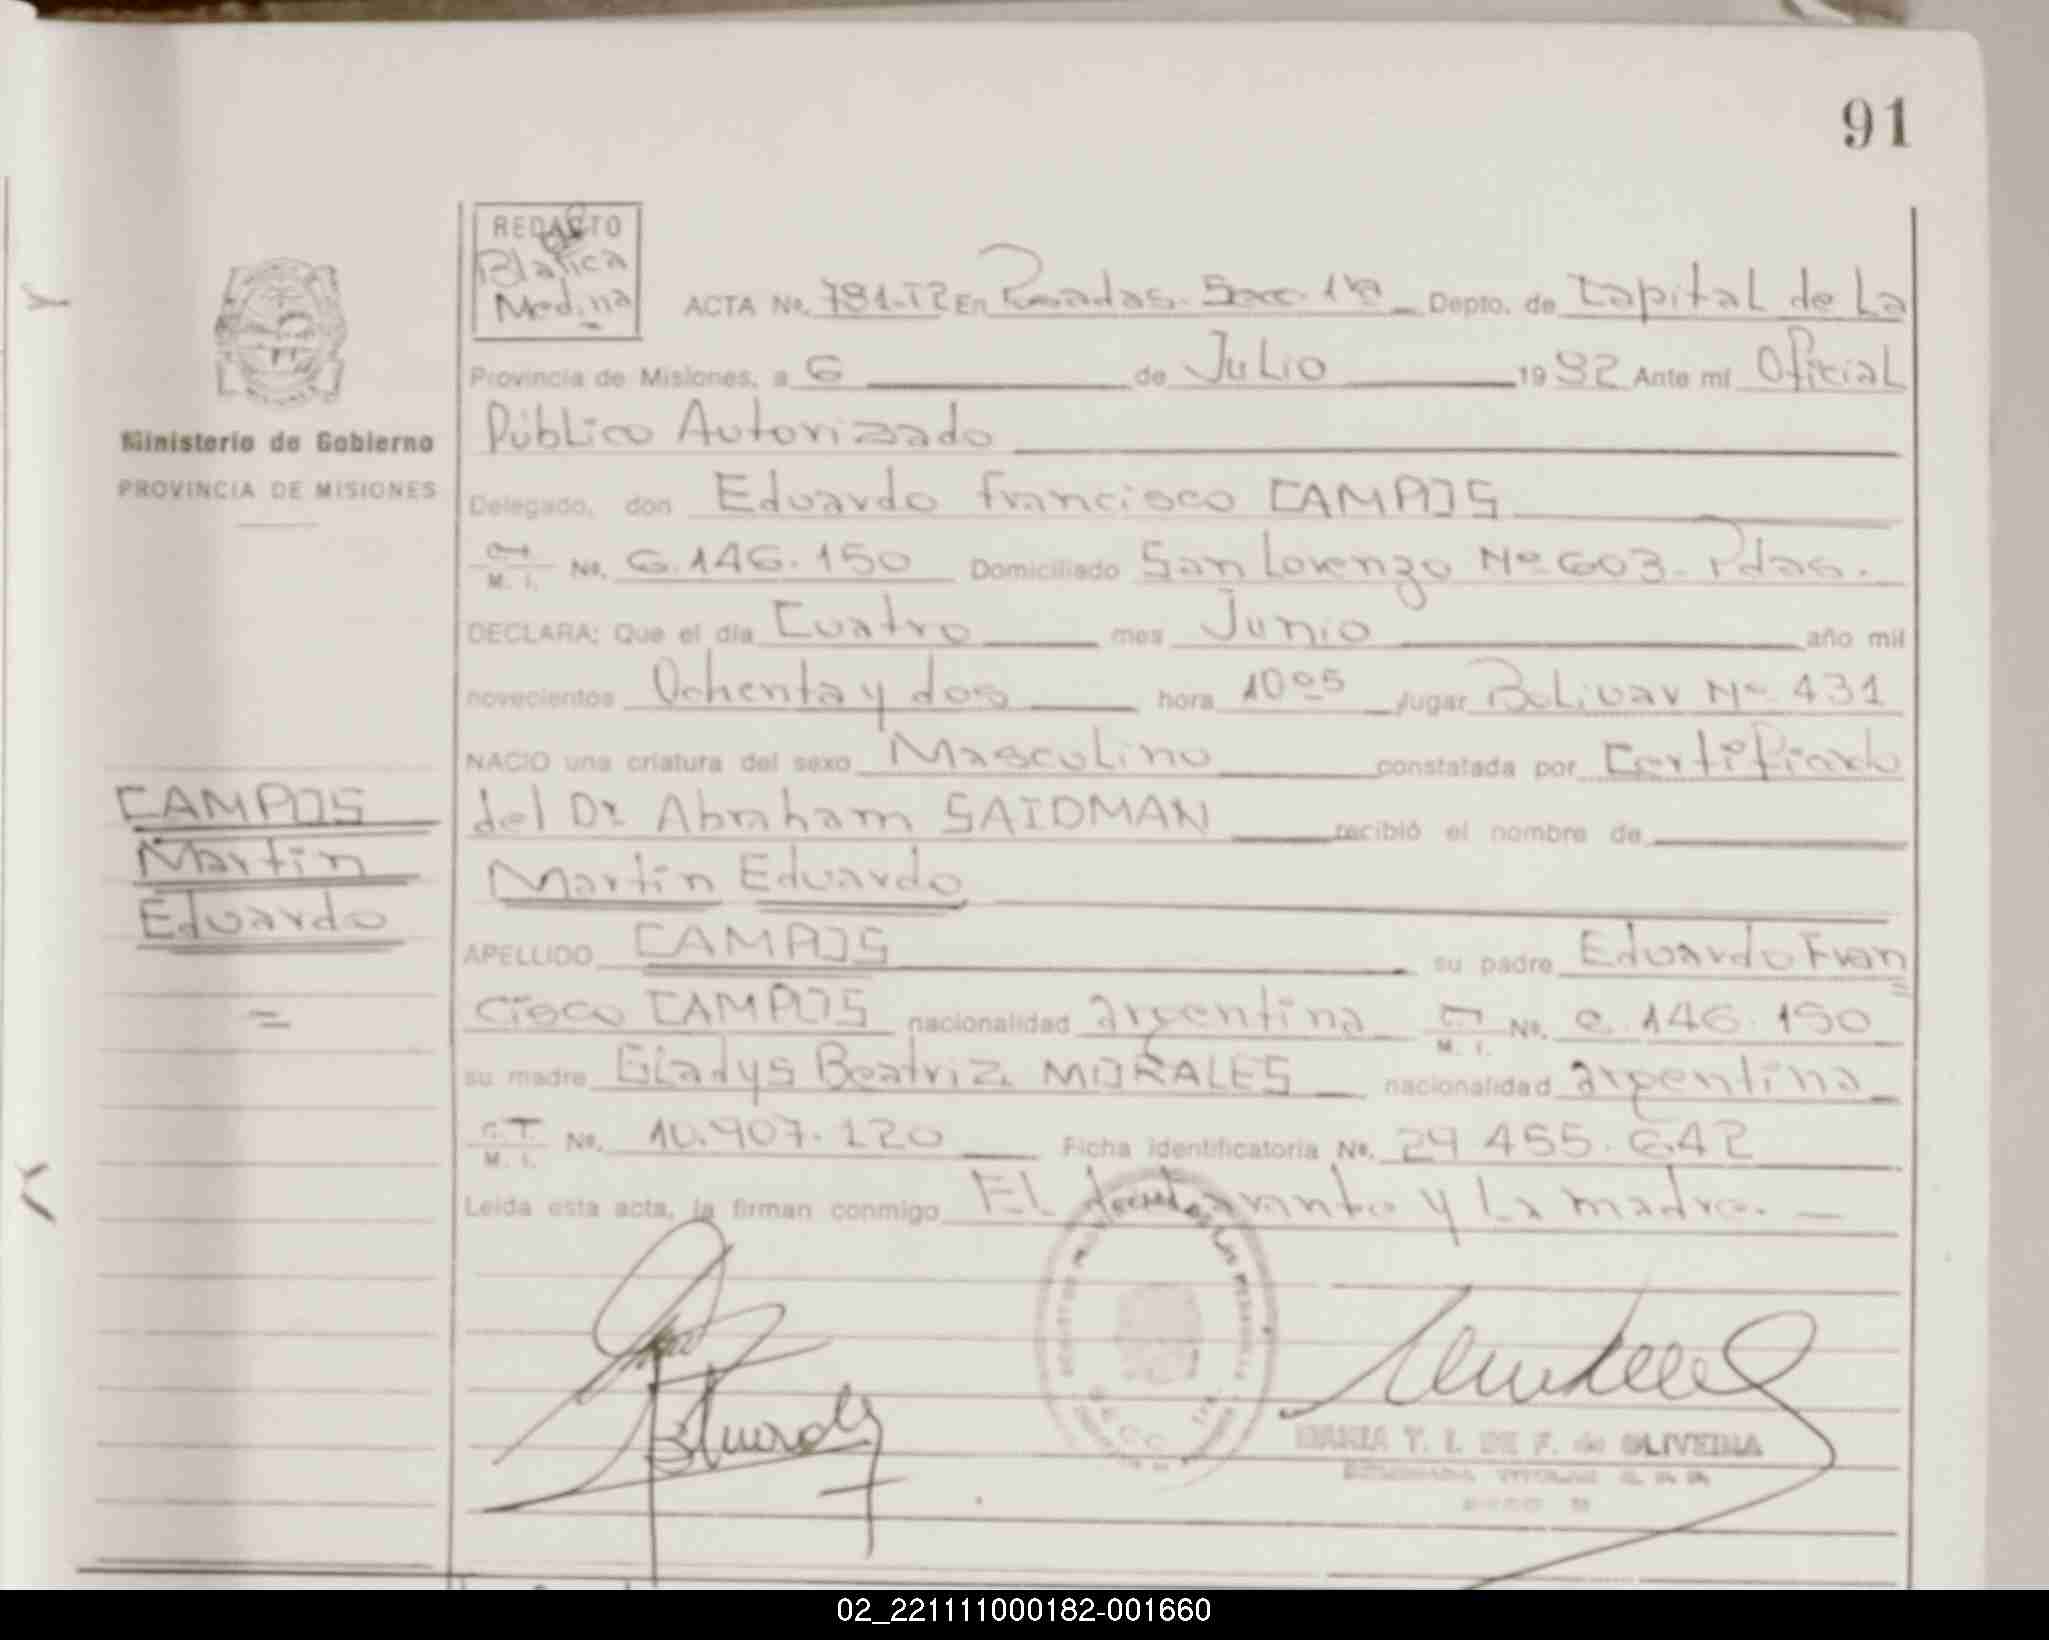 91
REDACTO
Blanca
Medina
ACTA No. 781-T2 En Posadas. Secc. 1ra Depto. de Capital de La
Provincia de Misiones, a 6 de Julio 1982 Ante mí Oficial
Público Autorizado
Ministerio de Gobierno
PROVINCIA DE MISIONES
Delegado, don Eduardo Francisco CAMPOS
M. I. No. 6.146.150 Domiciliado San Lorenzo Nº 603. Pdas.
DECLARA: Que el día Cuatro mes Junio año mil
novecientos Ochenta y dos hora 10º5 lugar Bolivar Nº 431
NACIO una criatura del sexo Masculino constatada por Certificado
del Dr Abraham SAIDMAN recibió el nombre de
CAMPOS
Martín
Eduardo
Martín Eduardo
APELLIDO CAMPOS su padre Eduardo Fran
cisco CAMPOS nacionalidad argentina C.I. M. I. No. 6.146.150
su madre Gladys Beatriz MORALES nacionalidad argentina
C.I. M. I. No. 10.907.120 Ficha identificatoria No. 29 455.642
Leída esta acta, la firman conmigo El declarante y La madre.
MARIA T. I. DE F. de OLIVEIRA
02_221111000182-001660